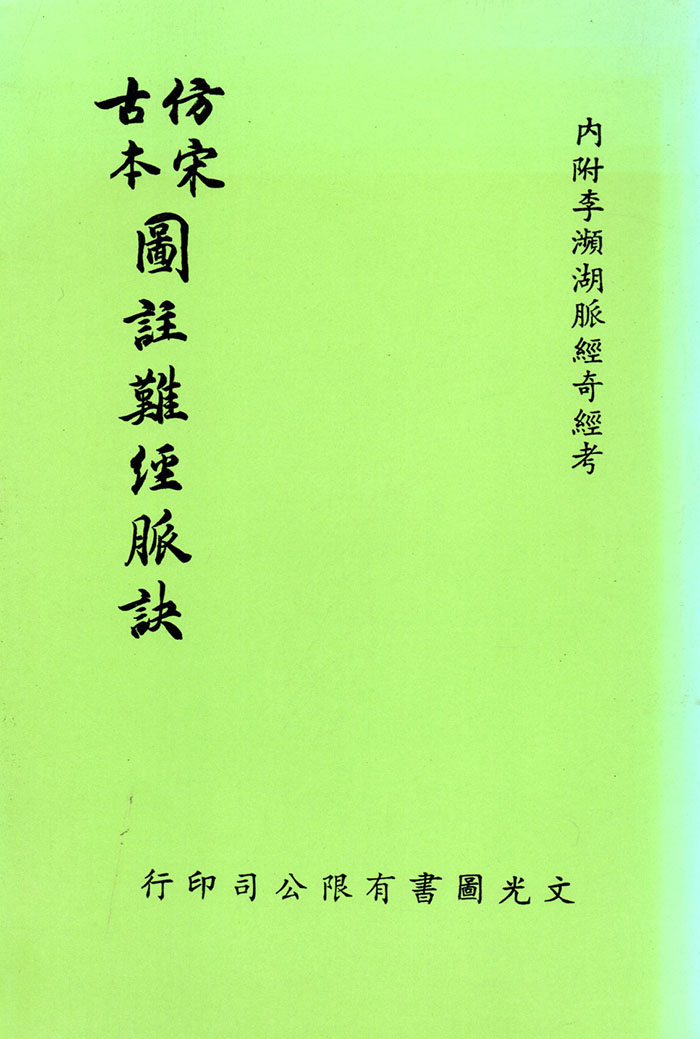 內附李瀕湖脈經奇經考
仿宋
古本
圖註難經脈訣
文光圖書有限公司印行